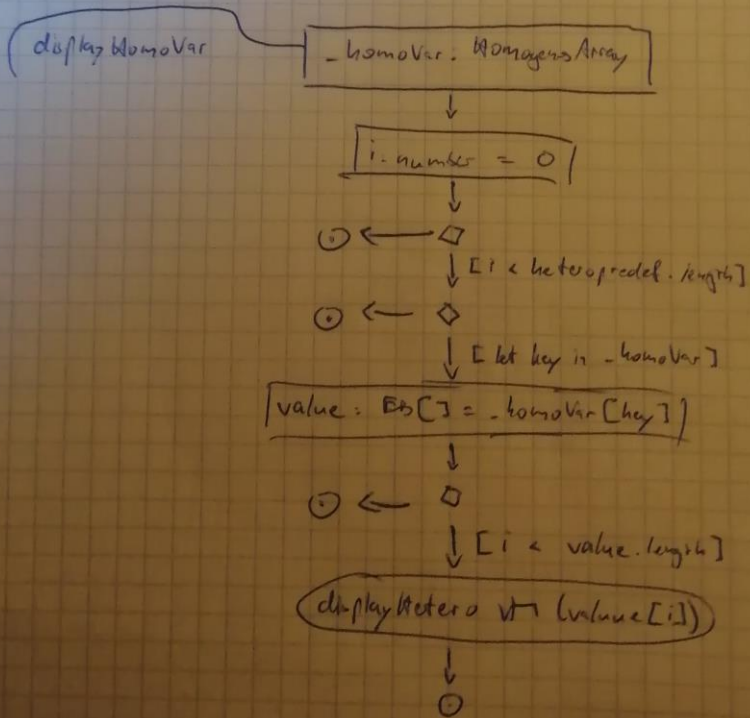 displayHomoVar
_homoVar: HomogenesArray
i: number = 0
[i < heteropredef.length]
[let key in _homoVar]
value: [] = _homoVar[key]
[i < value.length]
displayHetero (valuue[i])